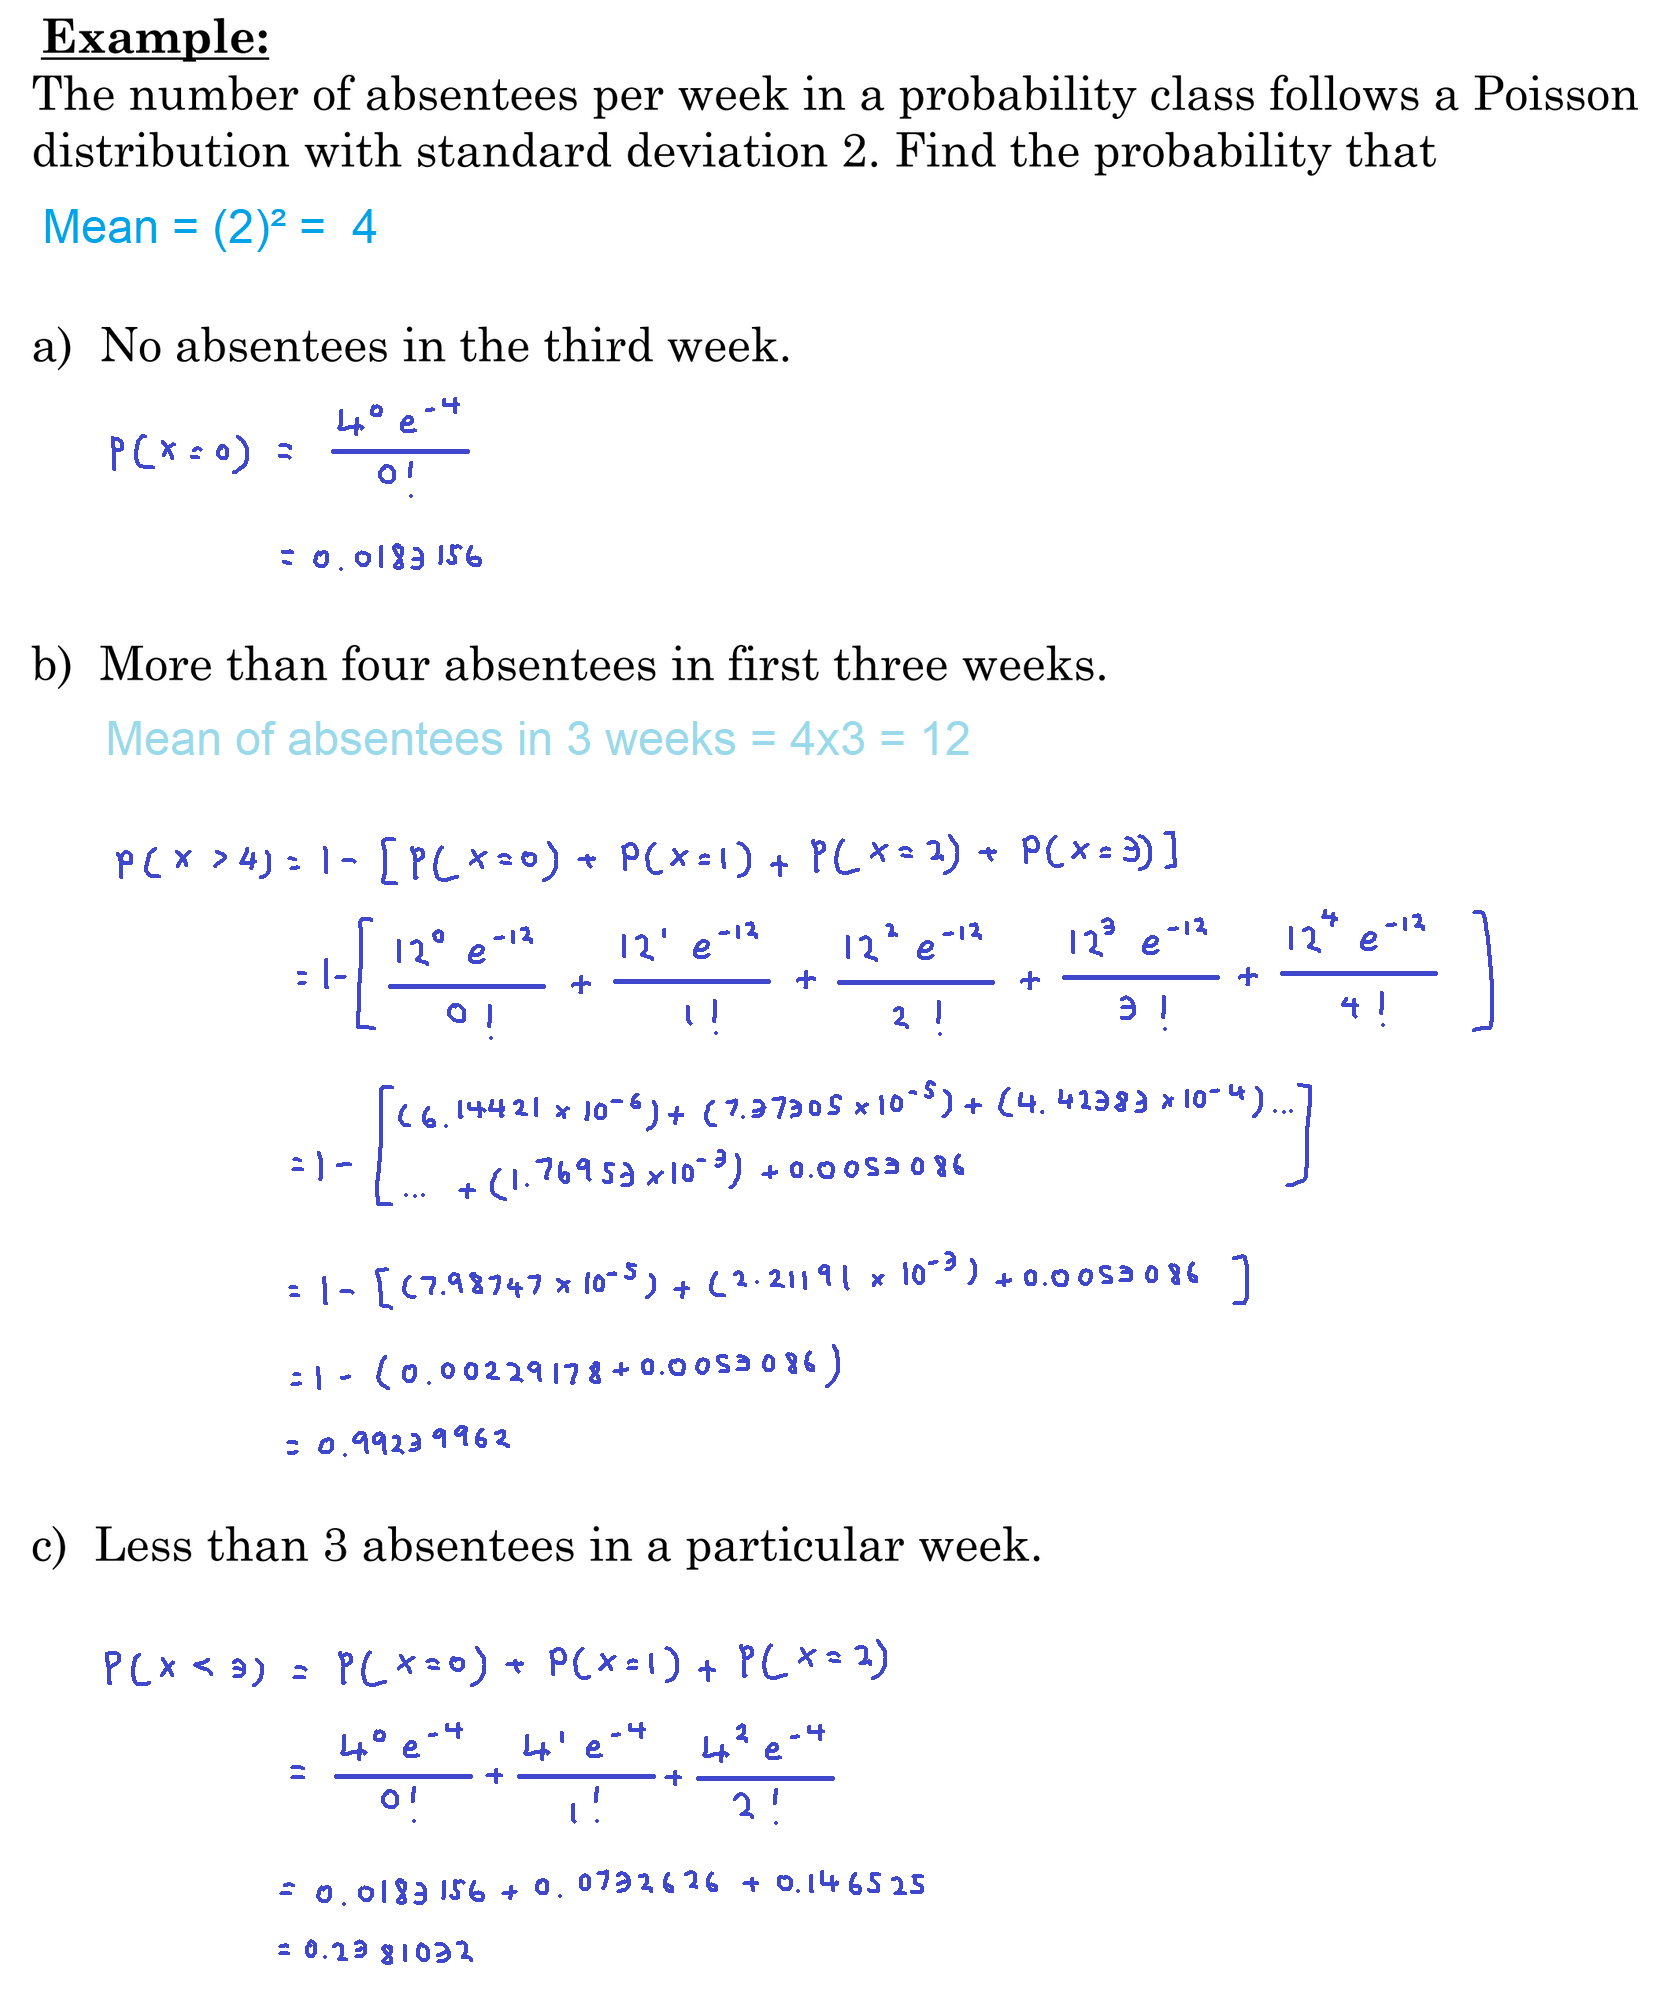 Example:
The number of absentees per week in a probability class follows a Poisson
distribution with standard deviation 2. Find the probability that
Mean = (2)² = 4
a) No absentees in the third week.
P(x=0) = 4⁰ e⁻⁴ / 0!
= 0.0183156
b) More than four absentees in first three weeks.
Mean of absentees in 3 weeks = 4x3 = 12
P(x > 4) = 1 - [P(x=0) + P(x=1) + P(x=2) + P(x=3)]
= 1 - [12⁰ e⁻¹² / 0! + 12¹ e⁻¹² / 1! + 12² e⁻¹² / 2! + 12³ e⁻¹² / 3! + 12⁴ e⁻¹² / 4!]
= 1 - [(6.14421 × 10⁻⁶) + (7.37305 × 10⁻⁵) + (4.42383 × 10⁻⁴) ...
... + (1.76953 × 10⁻³) + 0.0053086]
= 1 - [(7.98747 × 10⁻⁵) + (2.21191 × 10⁻³) + 0.0053086]
= 1 - (0.00229178 + 0.0053086)
= 0.99239962
c) Less than 3 absentees in a particular week.
P(x < 3) = P(x=0) + P(x=1) + P(x=2)
= 4⁰ e⁻⁴ / 0! + 4¹ e⁻⁴ / 1! + 4² e⁻⁴ / 2!
= 0.0183156 + 0.0732626 + 0.146525
= 0.2381032